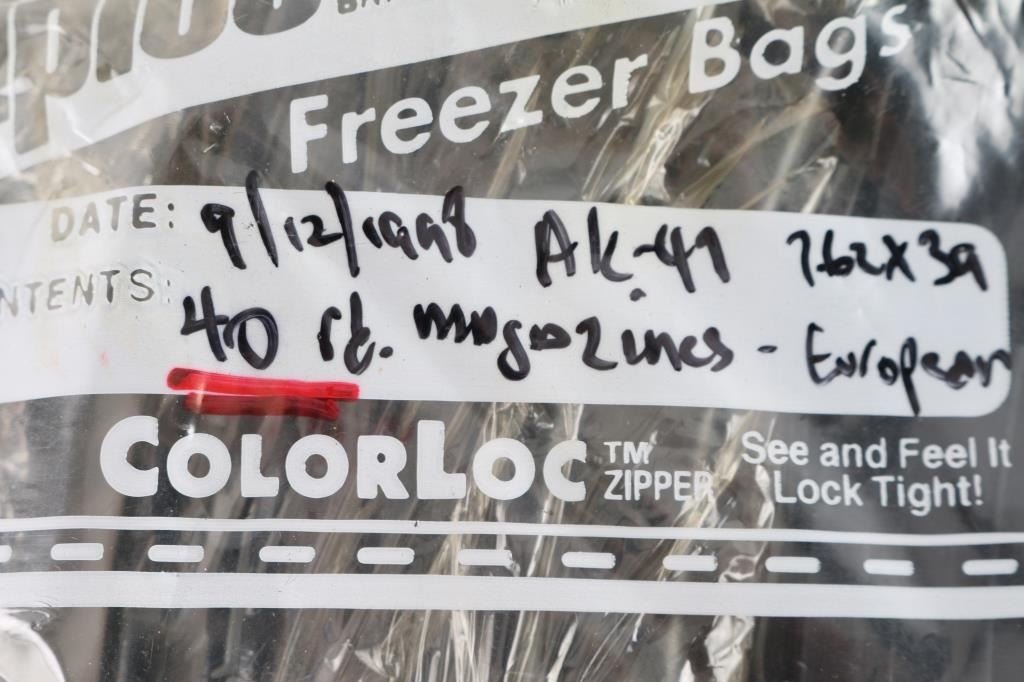 Freezer Bags
DATE: 9/12/1998 AK-47 7.62X39
NTENTS: 40 rd. magazines - European
COLORLOC™ ZIPPER
See and Feel It
Lock Tight!